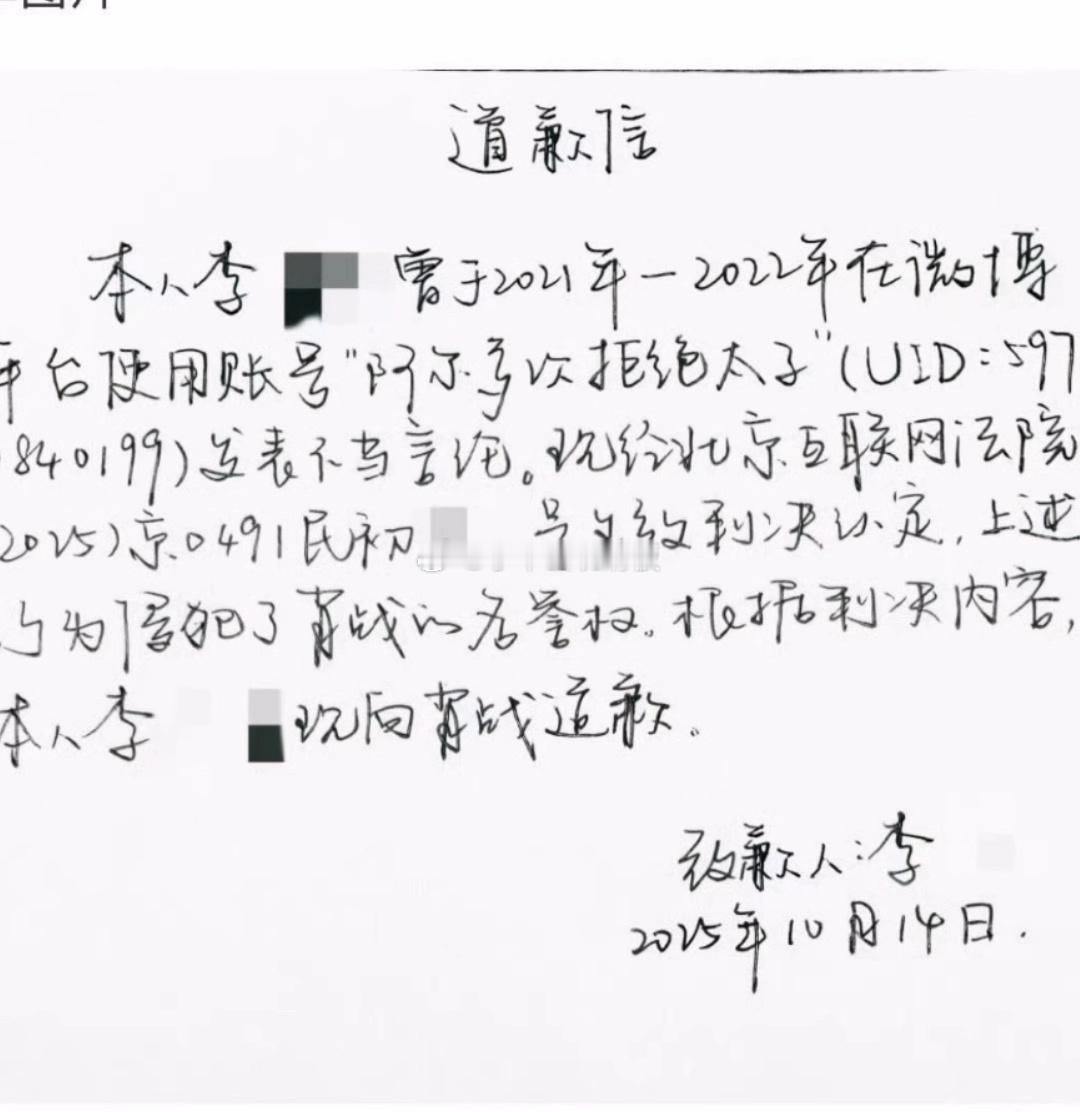 道歉信
本人李 曾于2021年-2022年在微博
平台使用账号"阿尔多次拒绝太子"(UID:597
1840199)发表不当言论。现经北京互联网法院
2025)京0491民初 号生效判决认定,上述
行为侵犯了肖战的名誉权。根据判决内容,
本人李 现向肖战道歉。
致歉人:李
2025年10月14日.